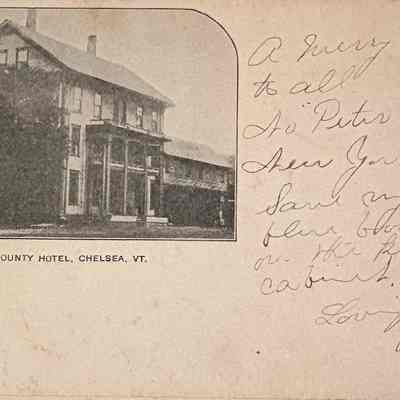 OUNTY HOTEL, CHELSEA, VT.
A merry
to all
to Peter
New Yor
Save my
blue boo
on the k
cabinet.
Lovin